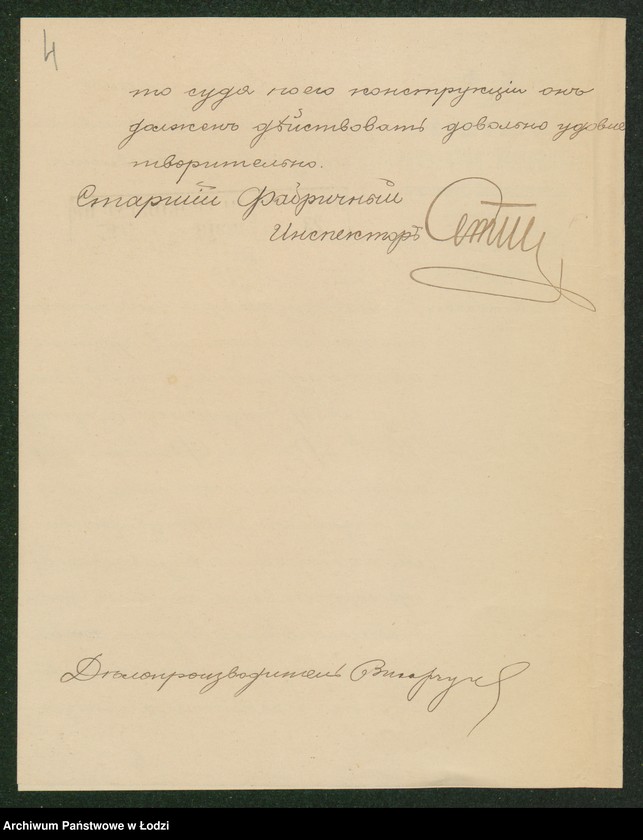 4
то судя по его конструкціи онъ
долженъ дѣйствовать довольно удовле
творительно.
Старшій Фабричный
Инспекторъ
Дѣлопроизводитель
Archiwum Państwowe w Łodzi